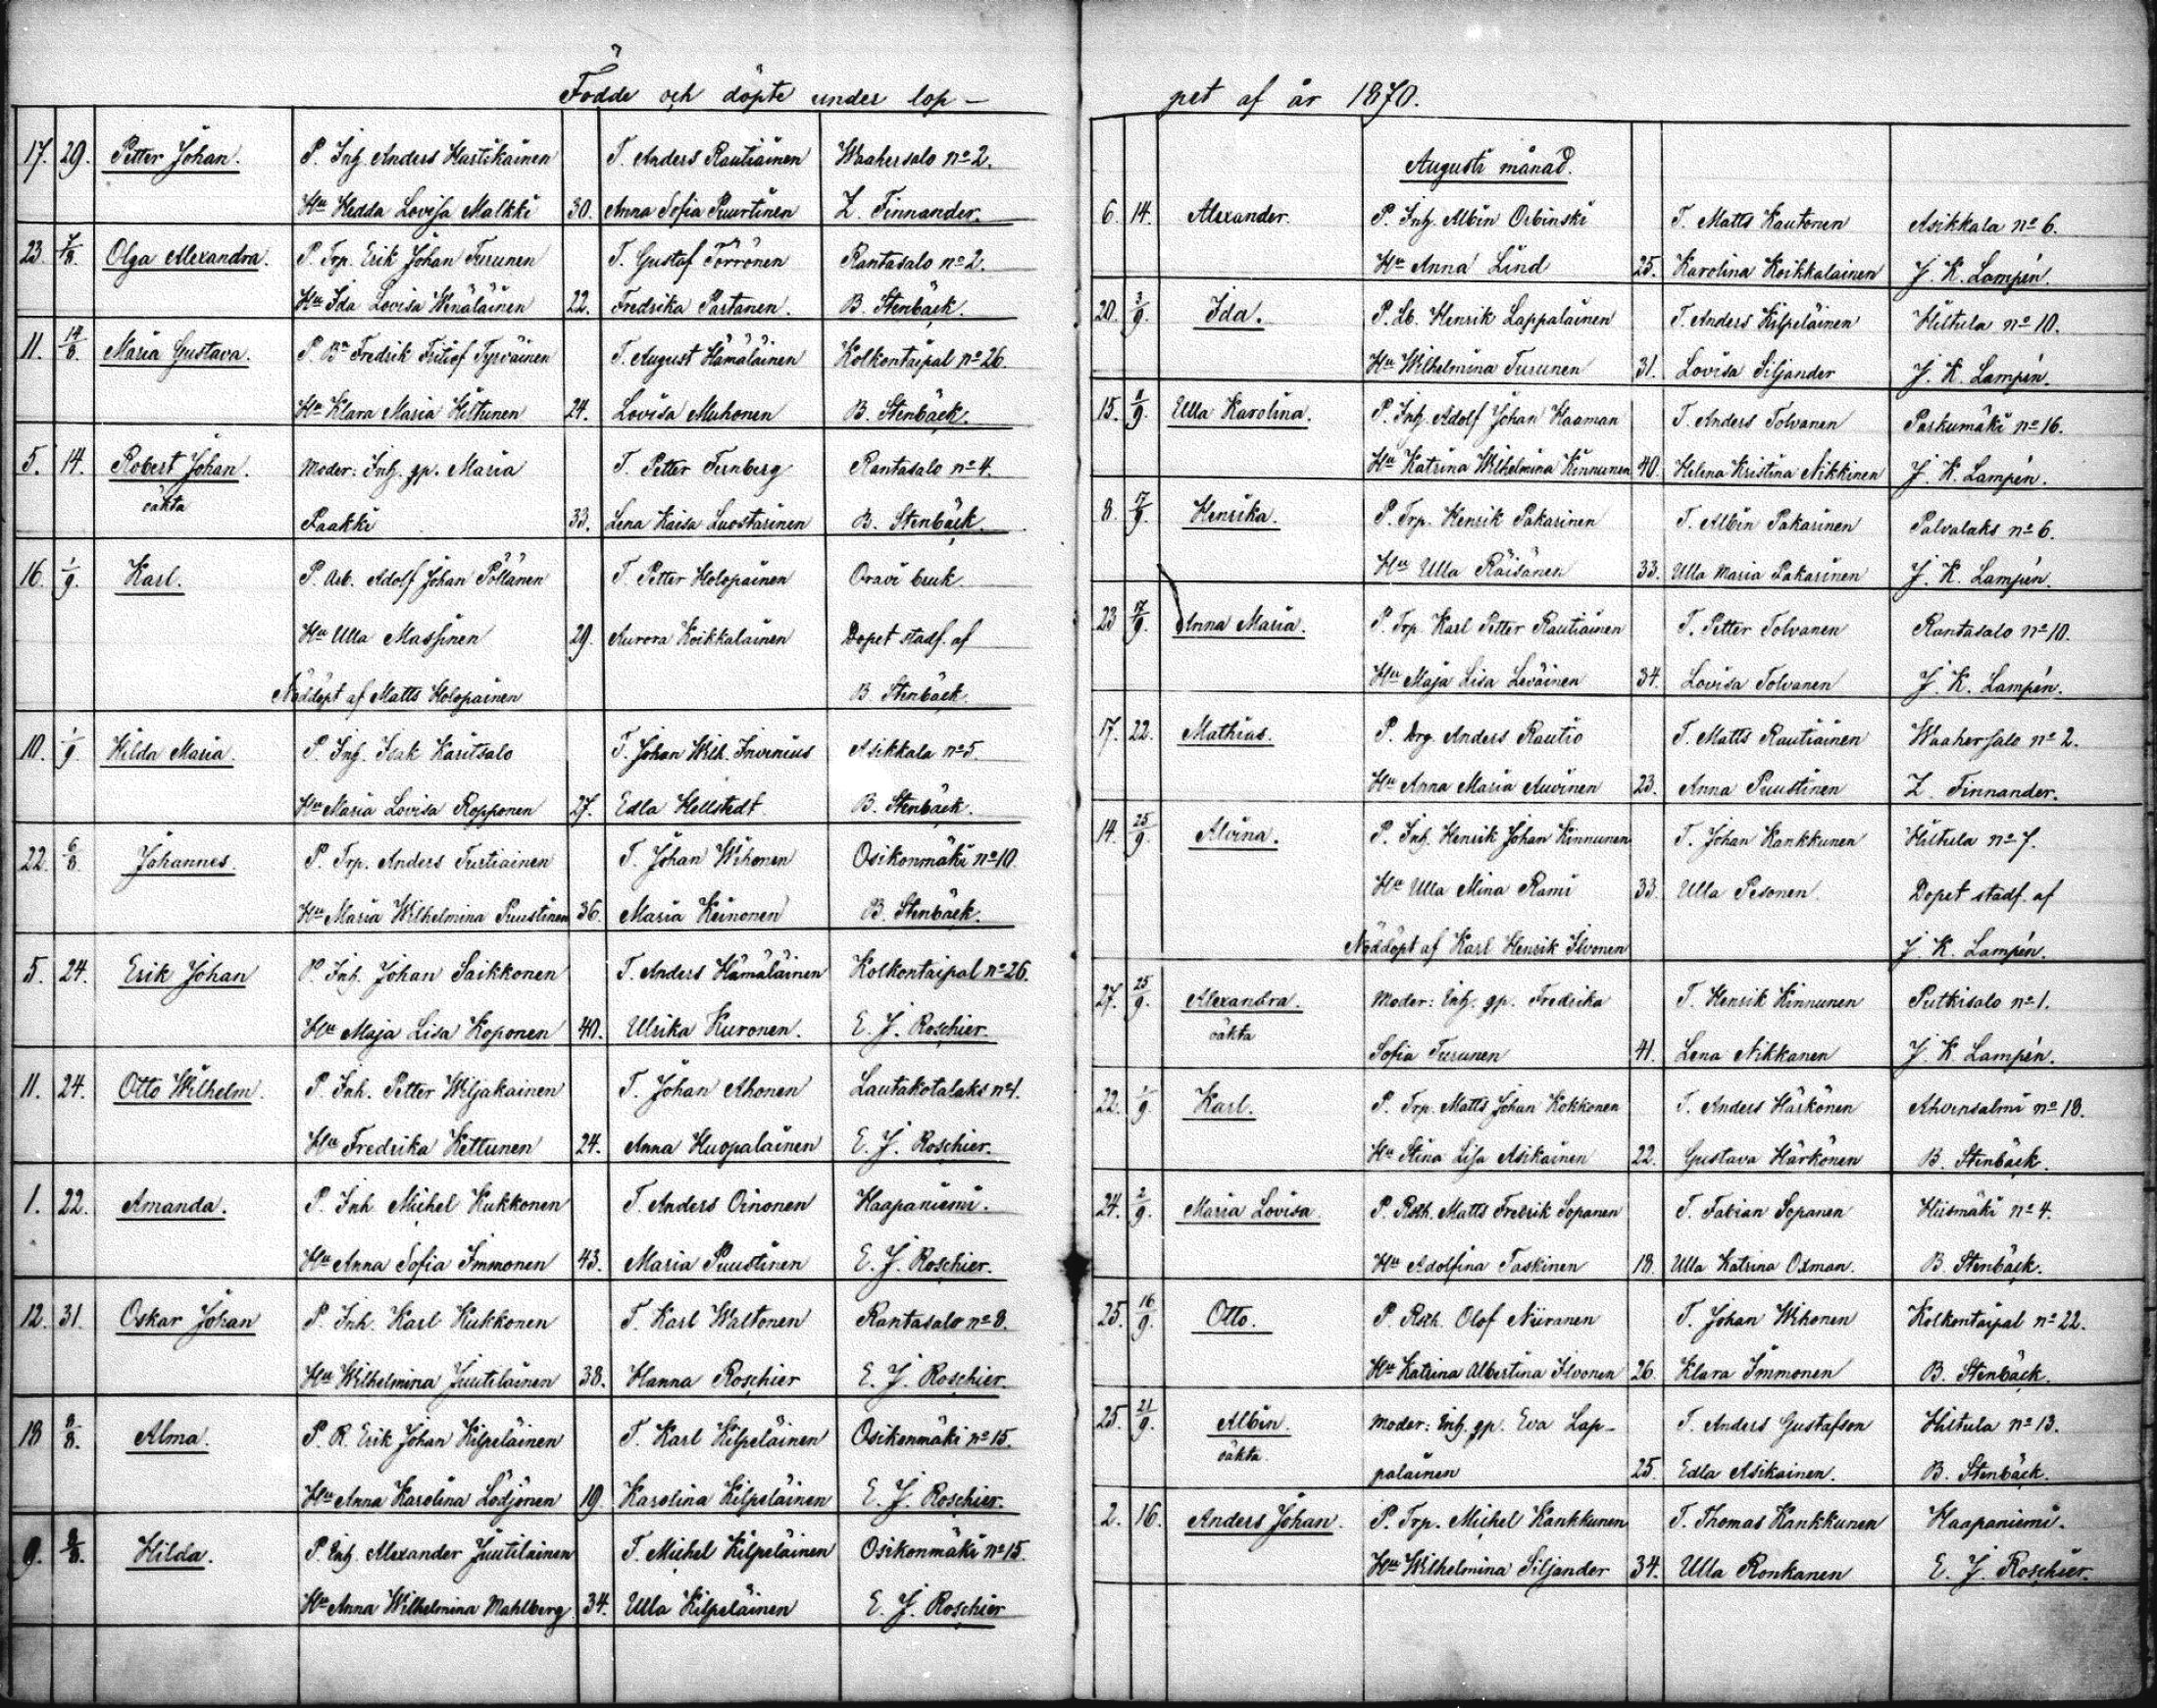 Födde och döpte under lop-
17. 29. Petter Johan. P. Inh. Anders Hartikainen T. Anders Rautiainen Waahersalo no 2.
Hu Hedda Lovisa Malkki 30. Anna Sofia Puurtinen Z. Finnander.
23. 7/8. Olga Alexandra. P. Trp. Erik Johan Turunen T. Gustaf Törrönen Rantasalo no 2.
Hu Ida Lovisa Wenäläinen 22. Fredrika Partanen. B. Stenbäck.
11. 14/8. Maria Gustava. P. Bn Fredrik Fritiof Tyrväinen T. August Hämäläinen Kolkontaipal no 26.
Hu Klara Maria Hiltunen 24. Lovisa Muhonen B. Stenbäck.
5. 14. Robert Johan. Moder: Inh. gp. Maria T. Petter Ternberg Rantasalo no 4.
oäkta Paakki 33. Lena Kaisa Luostarinen B. Stenbäck.
16. 1/9. Karl. P. Arb. Adolf Johan Pöllänen T. Petter Holopainen Oravi bruk.
Hu Ulla Massinen 29. Aurora Koikkalainen Dopet stadf. af
Nöddöpt af Matts Holopainen B. Stenbäck.
10. 1/9. Hilda Maria. P. Inh. Isak Karitsalo T. Johan Wilh. Invenius Asikkala no 5.
Hu Maria Lovisa Ropponen 27. Edla Hellstedt B. Stenbäck.
22. 6/8. Johannes. P. Trp. Anders Turtiainen T. Johan Wihonen Osikonmäki no 10.
Hu Maria Wilhelmina Puustinen 36. Maria Keinonen B. Stenbäck.
5. 24. Erik Johan P. Inh. Johan Saikkonen T. Anders Hämäläinen Kolkontaipal no 26.
Hu Maja Lisa Koponen 40. Ulrika Kuronen. E. J. Roschier.
11. 24. Otto Wilhelm. P. Inh. Petter Wiljakainen T. Johan Ahonen Lautakotalaks no 1.
Hu Fredrika Kettunen 24. Anna Huopalainen E. J. Roschier.
1. 22. Amanda. P. Inh. Michel Kukkonen T. Anders Oinonen Haapaniemi.
Hu Anna Sofia Immonen 43. Maria Puustinen E. J. Roschier.
12. 31. Oskar Johan P. Inh. Karl Kukkonen T. Karl Waltonen Rantasalo no 8.
Hu Wilhelmina Juutilainen 38. Hanna Roschier E. J. Roschier.
18 8/8. Alma. P. R. Erik Johan Kilpeläinen T. Karl Kilpeläinen Osikonmäki no 15.
Hu Anna Karolina Lodjonen 19. Karolina Kilpeläinen E. J. Roschier.
9. 8/8. Hilda. P. Inh. Alexander Juutilainen T. Michel Kilpeläinen Osikonmäki no 15.
Hu Anna Wilhelmina Mahlberg 34. Ulla Kilpeläinen E. J. Roschier
pet af år 1870.
Augusti månad.
6. 14. Alexander. P. Inh. Albin Orbinski T. Matts Kautonen Asikkala no 6.
Hu Anna Lind 25. Karolina Koikkalainen J. K. Lampén.
20. 3/9. Ida. P. Lb. Henrik Lappalainen T. Anders Kilpeläinen Hiltula no 10.
Hu Wilhelmina Turunen 31. Lovisa Siljander J. K. Lampén.
15. 8/9. Ulla Karolina. P. Inh. Adolf Johan Haaman T. Anders Tolvanen Parkumäki no 16.
Hu Katrina Wilhelmina Kinnunen 40. Helena Kristina Nikkinen J. K. Lampén.
8. 17/9. Henrika. P. Trp. Henrik Pakarinen T. Albin Pakarinen Palvalaks no 6.
Hu Ulla Räisänen 33. Ulla Maria Pakarinen J. K. Lampén.
23 17/9. Anna Maria. P. Trp. Karl Petter Rautiainen T. Petter Tolvanen Rantasalo no 10.
Hu Maja Lisa Leväinen 34. Lovisa Tolvanen J. K. Lampén.
17. 22. Mathias. P. Drg. Anders Rautio T. Matts Rautiainen Waahersalo no 2.
Hu Anna Maria Auvinen 23. Anna Puustinen Z. Finnander.
14. 25/9. Alvina. P. Inh. Henrik Johan Kinnunen T. Johan Kankkunen Hiltula no 7.
Hu Ulla Mina Rami 33 Ulla Pesonen. Dopet stadf. af
Nöddöpt af Karl Henrik Ilvonen J. K. Lampén.
27. 25/9. Alexandra. Moder: Inh. gp. Fredrika T. Henrik Kinnunen Putkisalo no 1.
oäkta Sofia Turunen 41. Lena Nikkanen J. K. Lampén.
22. 1/9. Karl. P. Trp. Matts Johan Kokkonen T. Anders Härkönen Ahvensalmi no 18.
Hu Stina Lisa Asikainen 22. Gustava Härkönen B. Stenbäck.
24. 2/9. Maria Lovisa. P. Rsth. Matts Fredrik Sopanen T. Fabian Sopanen Hiismäki no 4.
Hu Adolfina Taskinen 18. Ulla Katrina Oxman. B. Stenbäck.
25. 16/9. Otto. P. Rsth. Olof Niiranen T. Johan Wihonen Kolkontaipal no 22.
Hu Katrina Albertina Ilvonen 26. Klara Immonen B. Stenbäck.
25. 21/9. Albin. Moder: Inh. gp. Eva Lap- T. Anders Gustafson Hiltula no 13.
oäkta. palainen 25. Edla Asikainen. B. Stenbäck.
2. 16. Anders Johan. P. Trp. Michel Kankkunen T. Thomas Kankkunen Haapaniemi.
Hu Wilhelmina Siljander 34. Ulla Ronkanen E. J. Roschier.